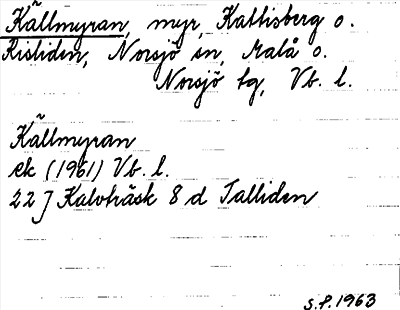 Källmyran, myr, Kattisberg o.
Risliden, Norsjö sn, Malå o.
Norsjö tg, Vb. l.
Källmyran
ek (1961) Vb. l.
22 J Kalvträsk 8 d Talliden
S.P. 1963